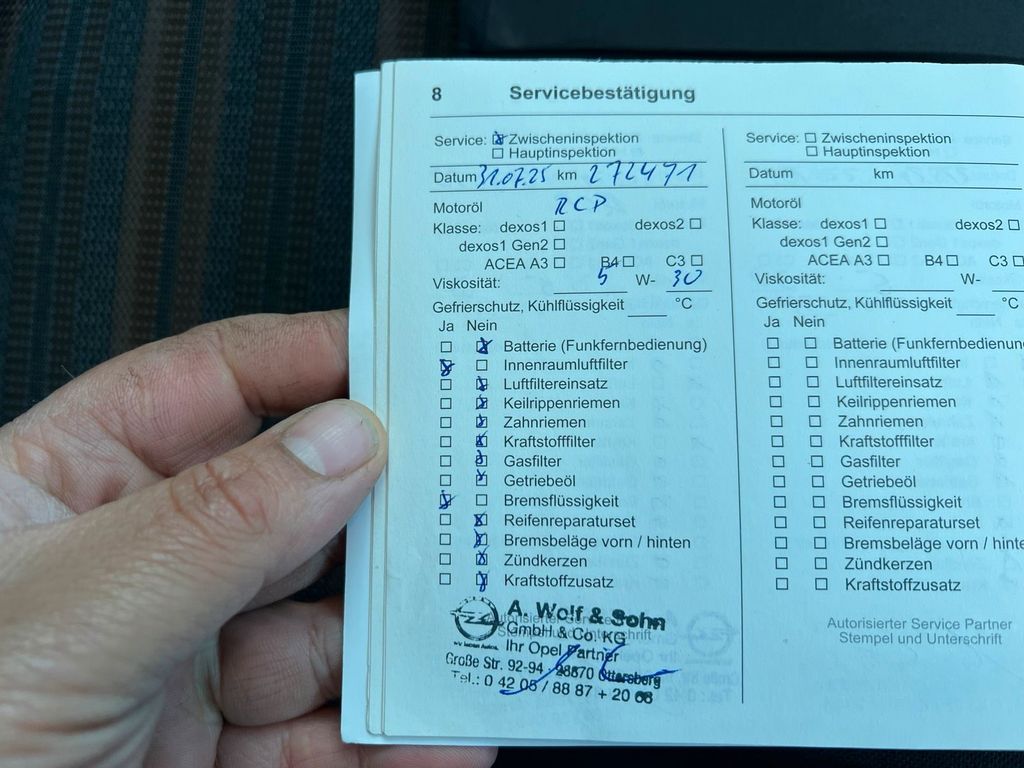 8 Servicebestätigung
Service: Zwischeninspektion
Hauptinspektion
Datum 31.07.25 km 272471
Motoröl RCP
Klasse: dexos1 dexos2
dexos1 Gen2
ACEA A3 B4 C3
Viskosität: 5 W- 30
Gefrierschutz, Kühlflüssigkeit °C
Ja Nein
Batterie (Funkfernbedienung)
Innenraumluftfilter
Luftfiltereinsatz
Keilrippenriemen
Zahnriemen
Kraftstofffilter
Gasfilter
Getriebeöl
Bremsflüssigkeit
Reifenreparaturset
Bremsbeläge vorn / hinten
Zündkerzen
Kraftstoffzusatz
A. Wolf & Sohn
GmbH & Co. KG
Ihr Opel Partner
Große Str. 92-94 · 28870 Ottersberg
Tel.: 0 42 05 / 88 87 + 20 68
Service: Zwischeninspektion
Hauptinspektion
Datum km
Motoröl
Klasse: dexos1 dexos2
dexos1 Gen2
ACEA A3 B4 C3
Viskosität: W-
Gefrierschutz, Kühlflüssigkeit °C
Ja Nein
Batterie (Funkfernbedienun
Innenraumluftfilter
Luftfiltereinsatz
Keilrippenriemen
Zahnriemen
Kraftstofffilter
Gasfilter
Getriebeöl
Bremsflüssigkeit
Reifenreparaturset
Bremsbeläge vorn / hinte
Zündkerzen
Kraftstoffzusatz
Autorisierter Service Partner
Stempel und Unterschrift